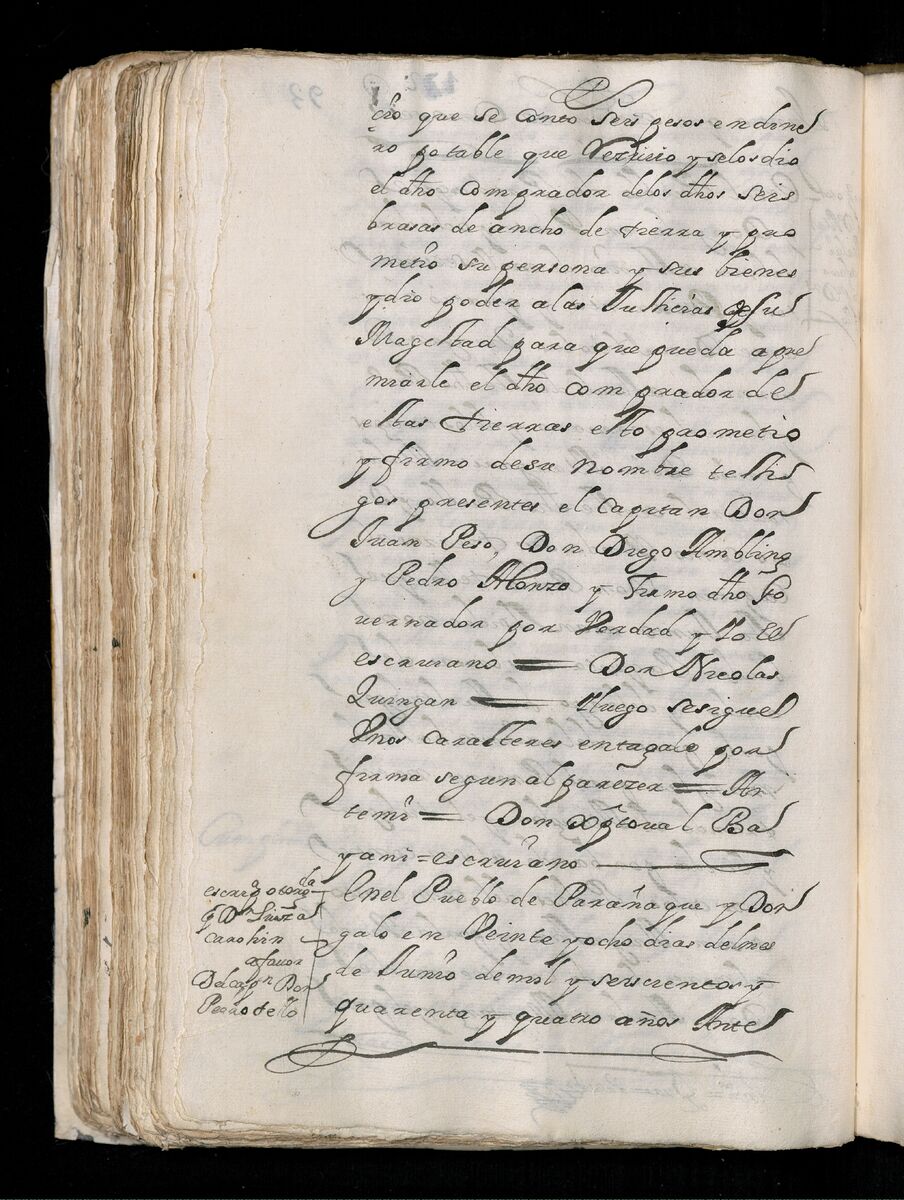 cio que se conto Seis pesos en dine
ro potable que Reziuio y selos dio
el dho comprador delos dhos seis
brasas de ancho de tierra y pro
metio su persona y sus bienes
y dio poder alas Justicias de su
Magestad para que pueda apre
miarle el dho comprador de
estas tierras esto prometio
y firmo desu nombre testi
gos presentes el Capitan Don
Juan Peso, Don Diego Ambling
y Pedro Alonzo y firmo dho Go
uernador por Verdad y Yo El
escriuano = Don Nicolas
Quingan = Yluego sesigue
Vnos caracteres entagalo por
firma segun al parezer = An
temi = Don Xptoual Ba
yani = escriuano
Enel Pueblo de Parañaque y Don
galo en Veinte y ocho dias delmes
de Junio demil y seiscientos y
quarenta y quatro años Ante
escrio otorgda
p Dn Luiza
Carohin
afauor
Delcapn Don
Pedro tello